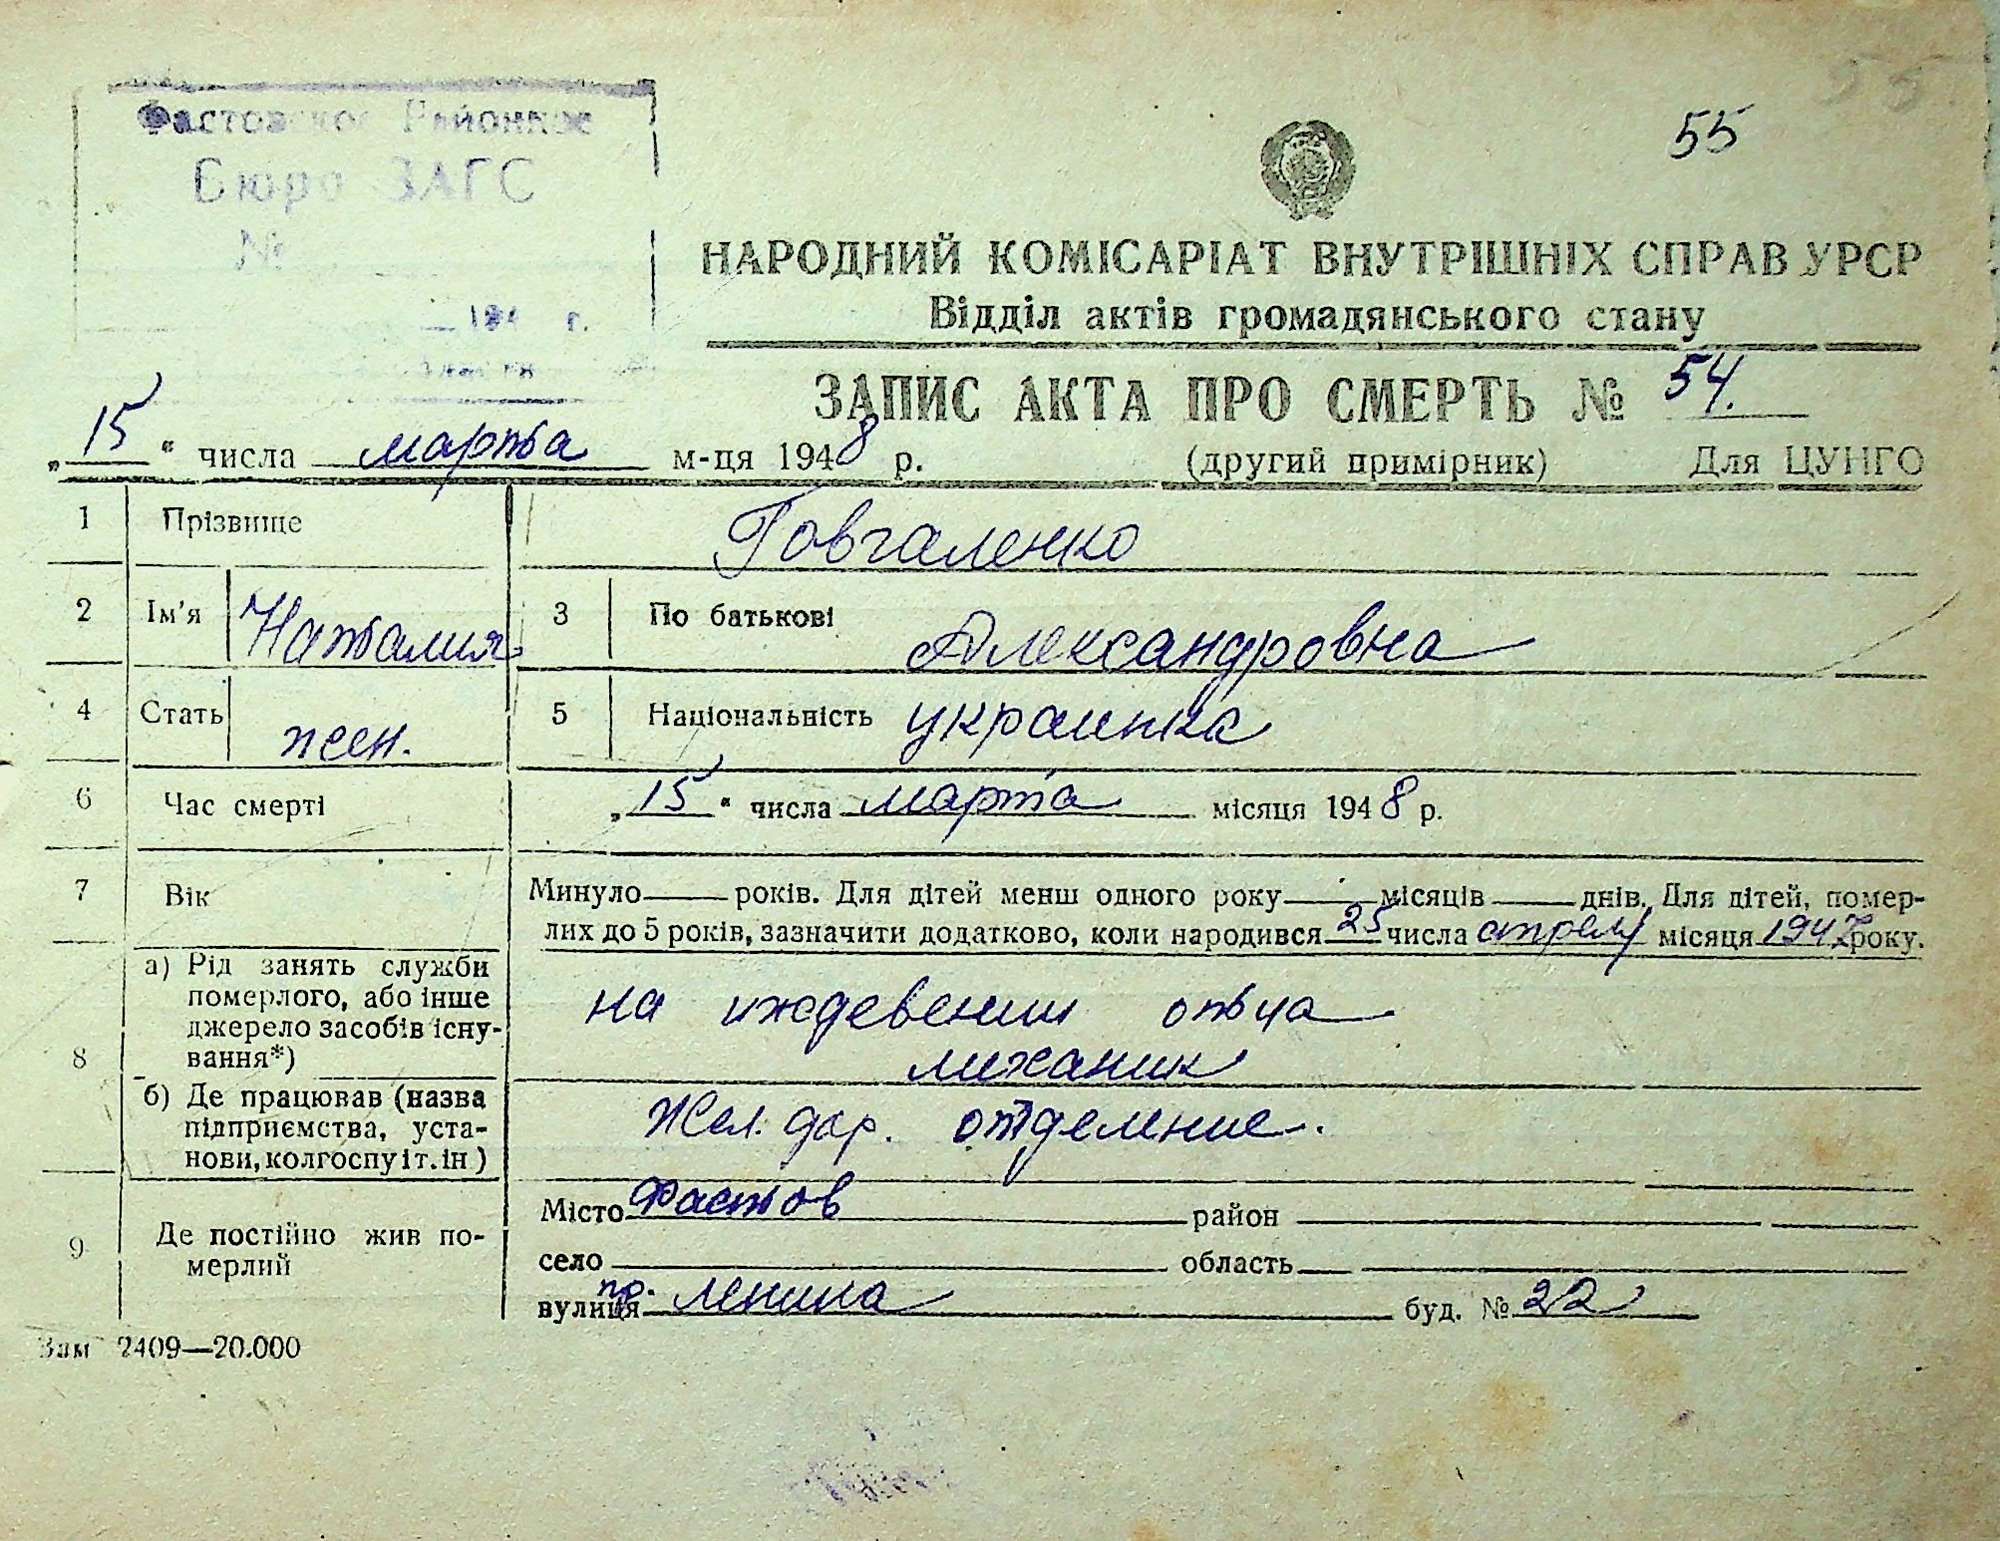 55
Фастовское Районное
55
Бюро ЗАГС
№
194 г.
НАРОДНИЙ КОМІСАРІАТ ВНУТРІШНІХ СПРАВ УРСР
Відділ актів громадянського стану
ЗАПИС АКТА ПРО СМЕРТЬ № 54.
„15“ числа марта м-ця 1948 р. (другий примірник) Для ЦУНГО
1 Прізвище Говгаленко
2 Ім'я Наталия 3 По батькові Александровна
4 Стать жен. 5 Національність украинка
6 Час смерті „15“ числа марта місяця 1948 р.
7 Вік Минуло — років. Для дітей менш одного року — місяців — днів. Для дітей, помер-
лих до 5 років, зазначити додатково, коли народився 25 числа апреля місяця 1947 року.
8 а) Рід занять служби
померлого, або інше
джерело засобів існу-
вання*)
на иждевении отца
миханик
б) Де працював (назва
підприємства, уста-
нови, колгоспу і т. ін)
Жел. дор. отделение.
9 Де постійно жив по-
мерлий
Місто Фастов район
село область
вулиця пр. Ленина буд. № 22
Зам 2409—20.000